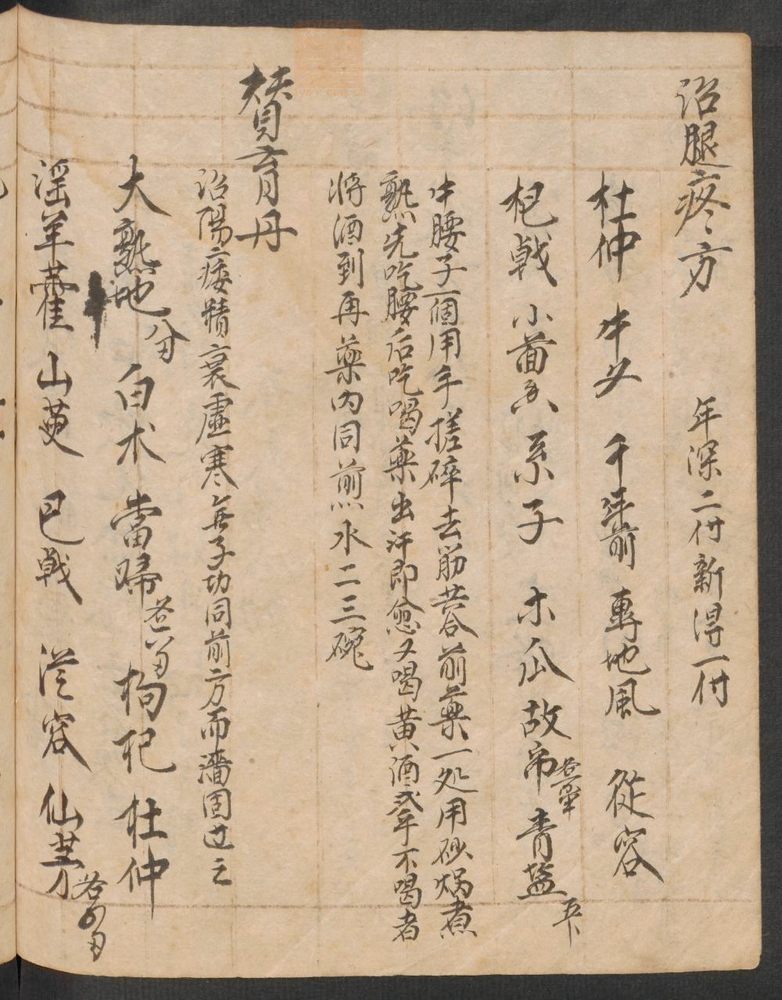 治腿疼方 年深二付新得一付
杜仲 牛夕 千年前 專地風 從容
杞戟 小茴香 系子 木瓜 故帋 青盐
牛腰子一個用手搓碎去筋共合前藥一处用砂焗煮
熟先吃腰后吃喝藥出汗即愈又喝黄酒 不喝者
將酒到再藥內同煎水二三碗
贊育丹
治陽痿精衰虛寒無子功同前方而 固
大熟地 白朮 當歸 枸杞 杜仲
淫羊藿 山萸 巴戟 從容 仙茅